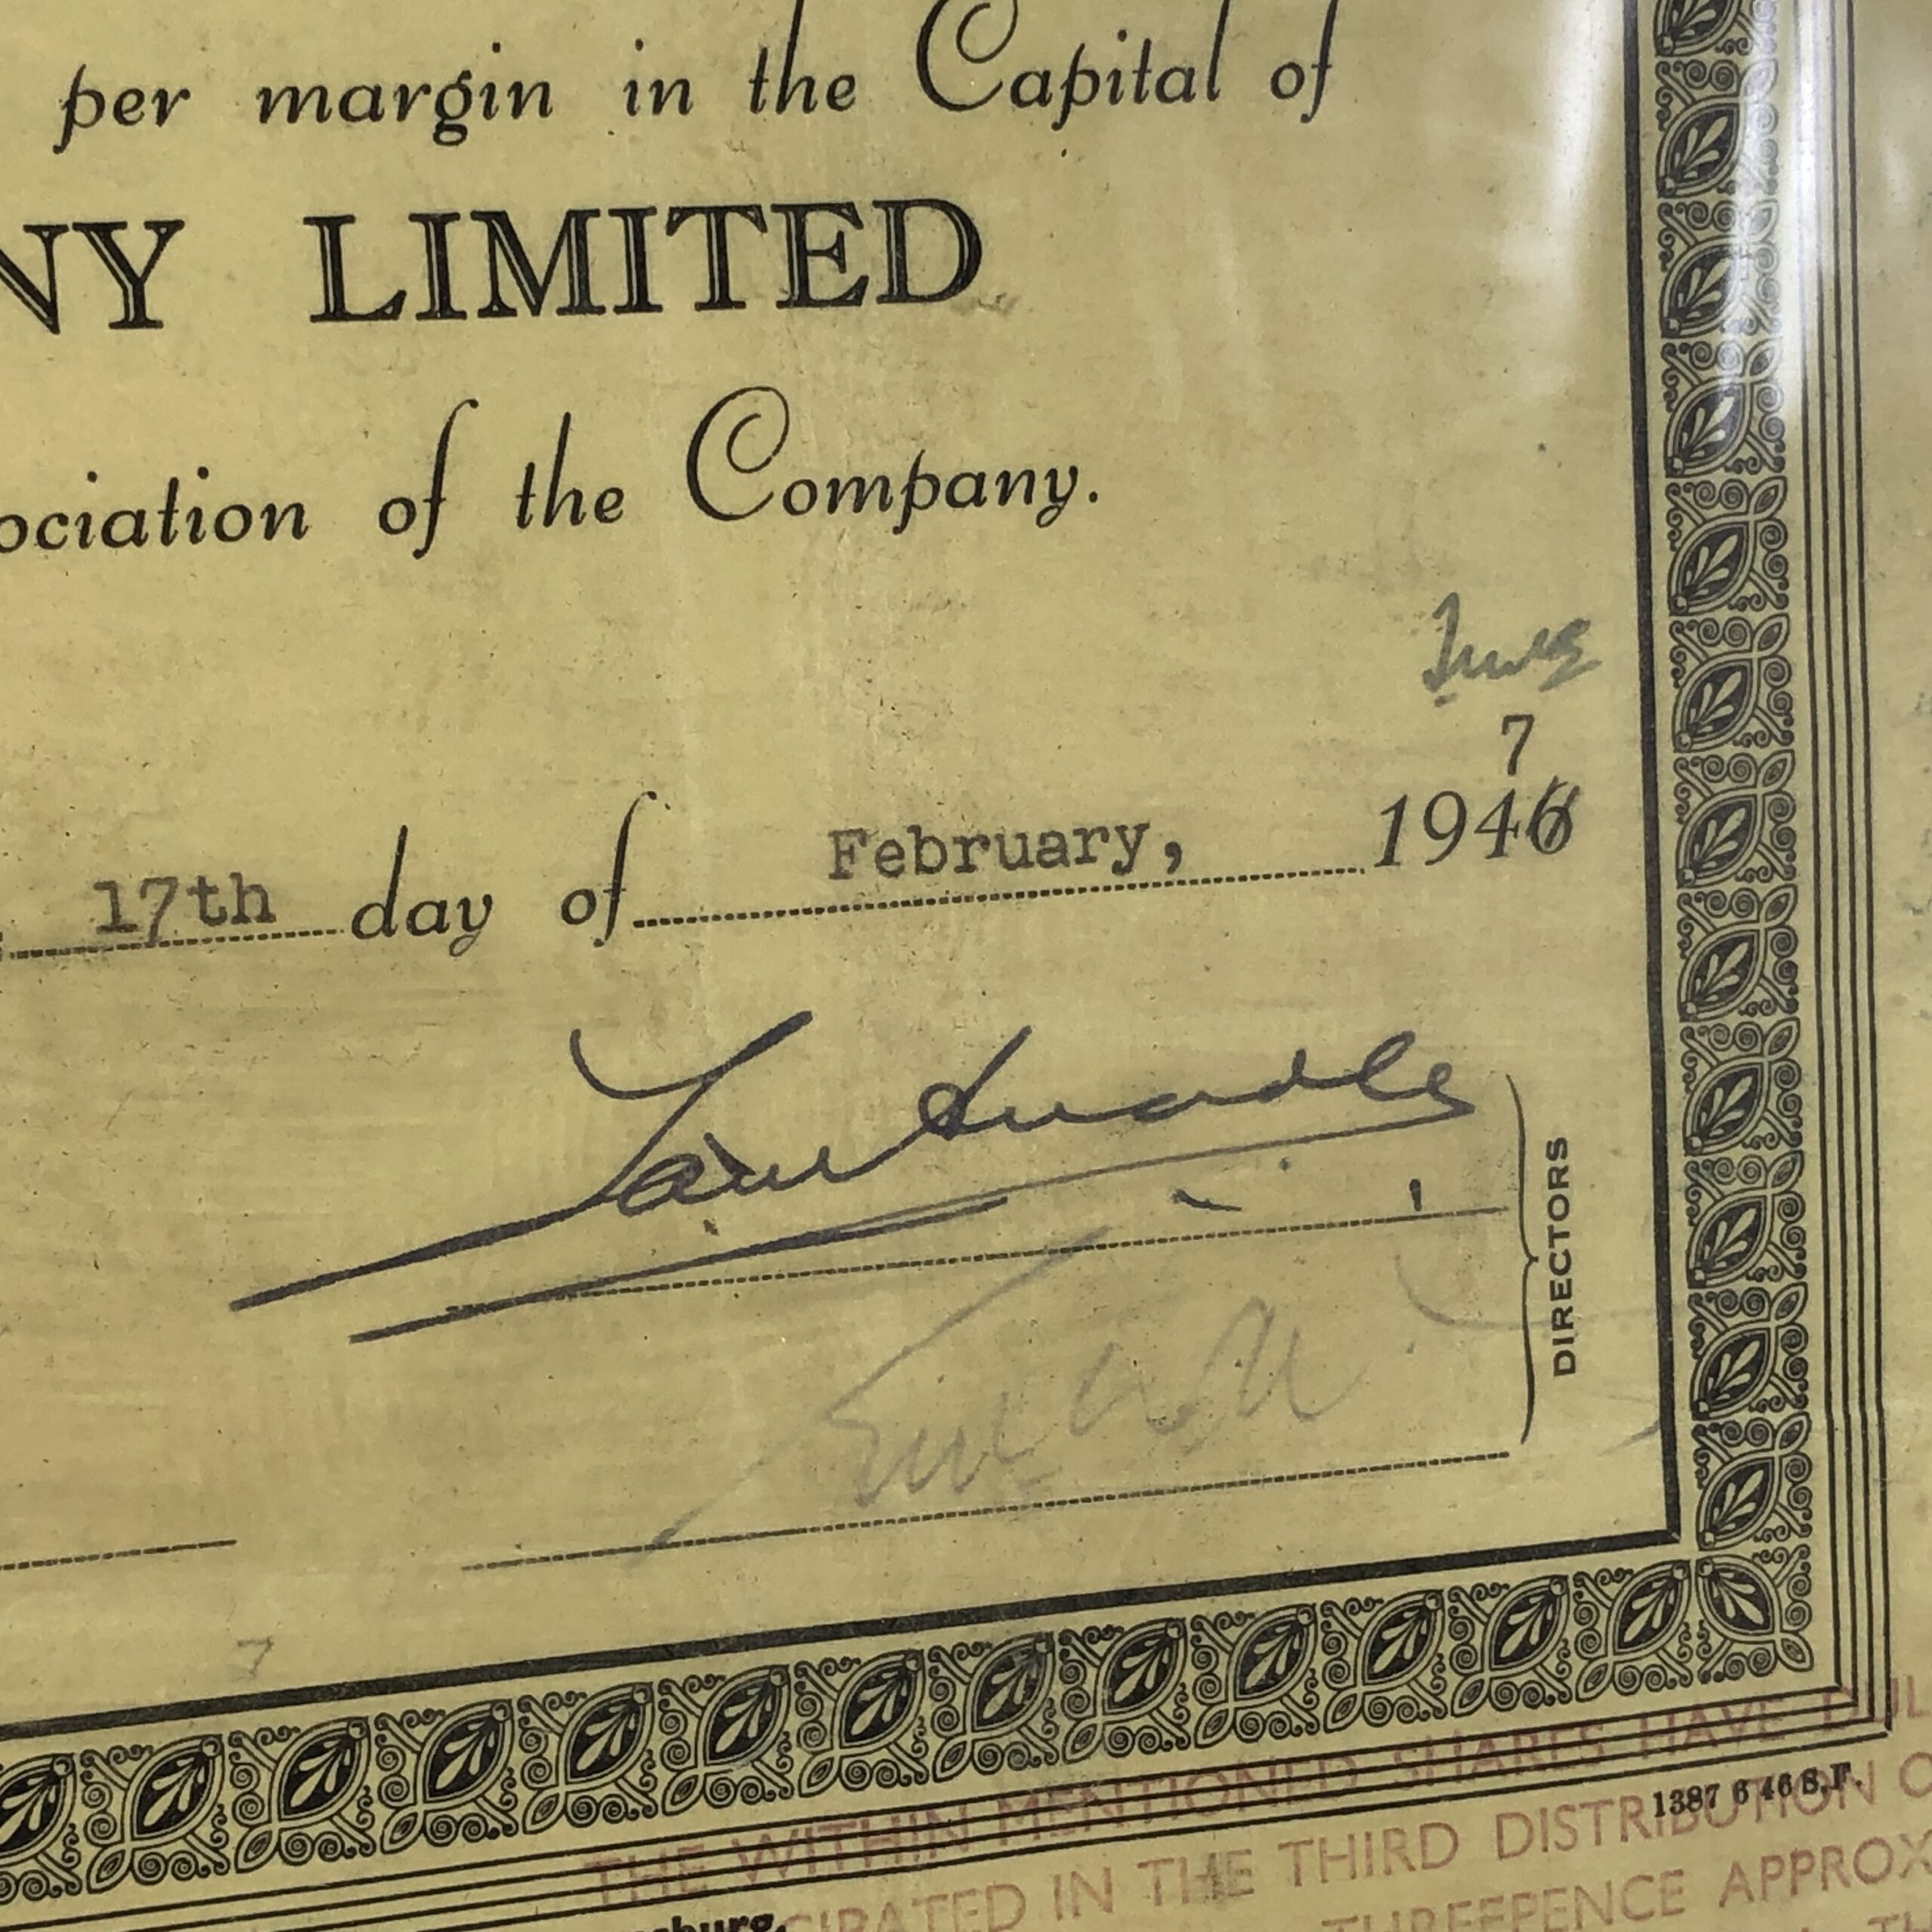 per margin in the Capital of
NY LIMITED
ociation of the Company.
7
17th day of February, 1946
DIRECTORS
7
THE WITHIN MENTIONED SHARES HAVE DUL
1387 6 46 S.F.
CIPATED IN THE THIRD DISTRIBUTION O
THREEPENCE APPROX
sburg.